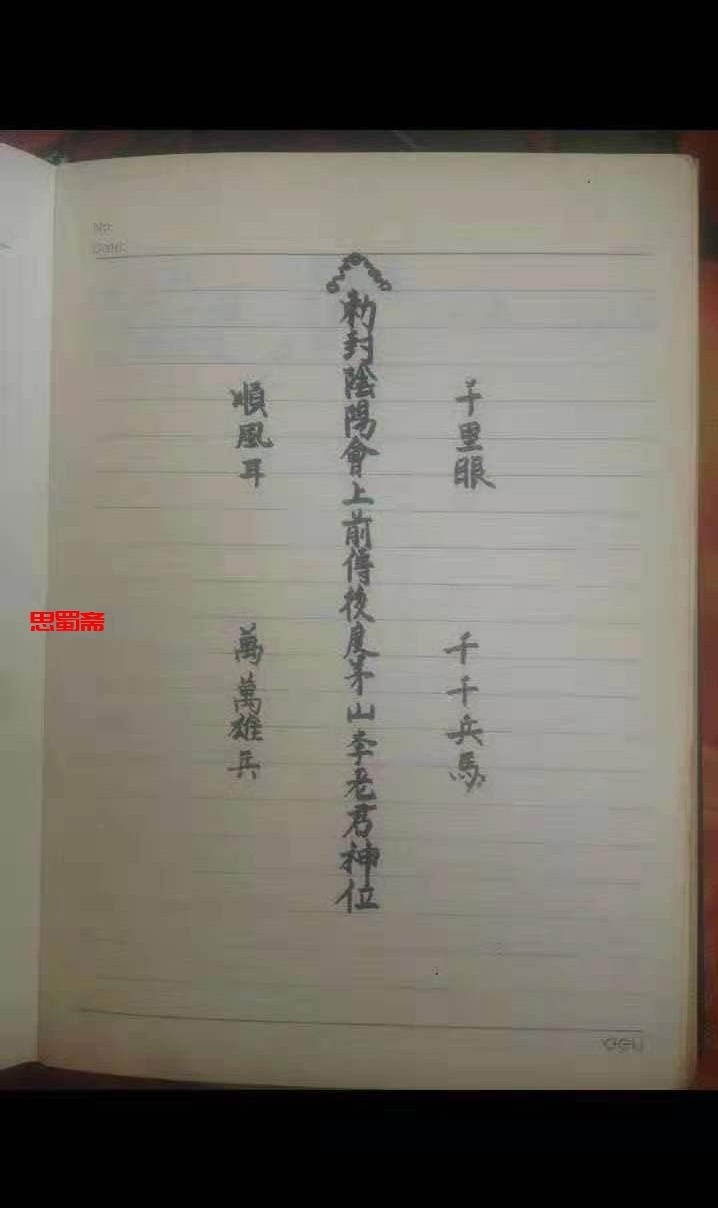 No:
Date:
千里眼
千千兵馬
勅封陰陽會上前傳後度茅山李老君神位
順風耳
萬萬雄兵
思蜀斋
deli